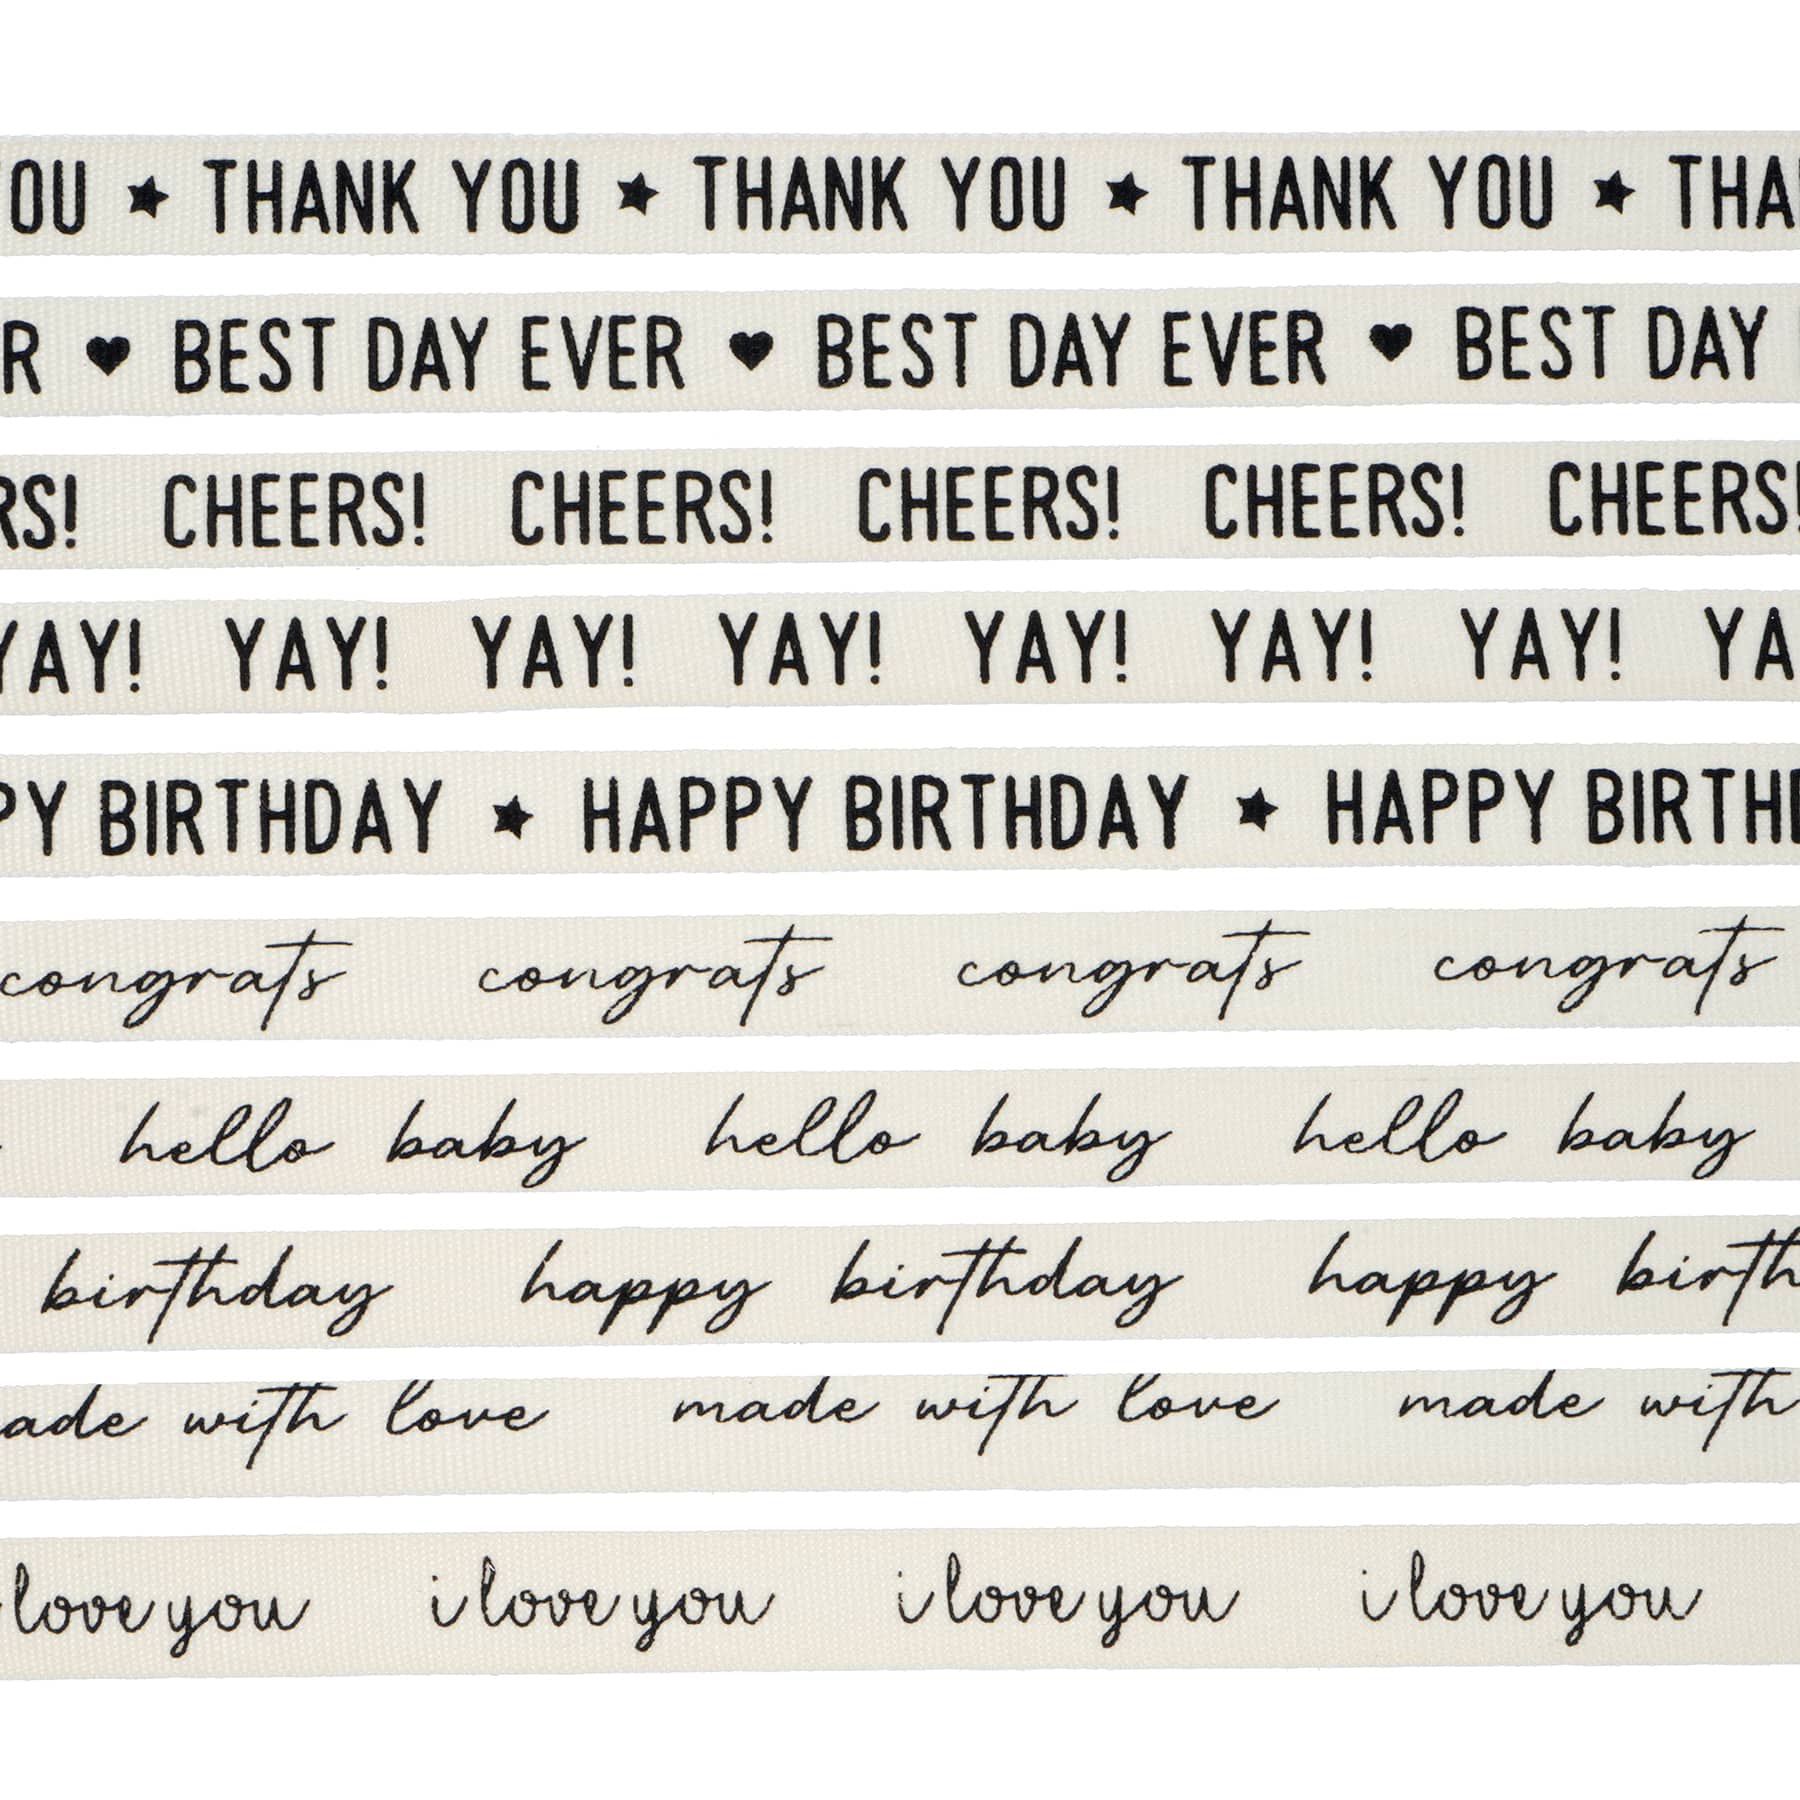 OU ★ THANK YOU ★ THANK YOU ★ THANK YOU ★ THA
R ♥ BEST DAY EVER ♥ BEST DAY EVER ♥ BEST DAY
RS! CHEERS! CHEERS! CHEERS! CHEERS! CHEERS!
YAY! YAY! YAY! YAY! YAY! YAY! YAY! YA
PY BIRTHDAY ★ HAPPY BIRTHDAY ★ HAPPY BIRTHD
congrats congrats congrats congrats
hello baby hello baby hello baby
birthday happy birthday happy birth
ade with love made with love made with
love you i love you i love you i love you